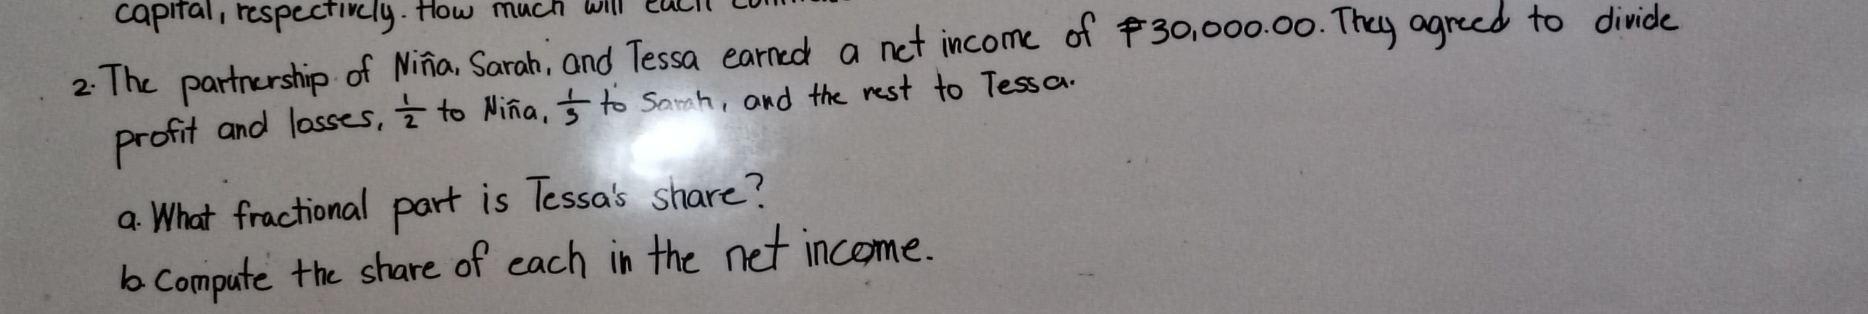 capital, respectively. How much will each
2. The partnership of Niña, Sarah, and Tessa earned a net income of ₱30,000.00. They agreed to divide
profit and losses, 1/2 to Niña, 1/3 to Sarah, and the rest to Tessa.
a. What fractional part is Tessa's share?
b. Compute the share of each in the net income.